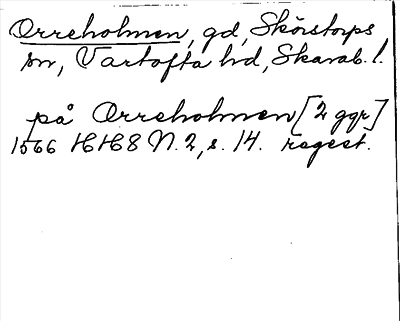 Orreholmen, gd, Skörstorps
sn, Vartofta hd, Skarab. l.
på Orreholmen [2 ggr]
1566 HH8 N. 2, s. 14. regest.